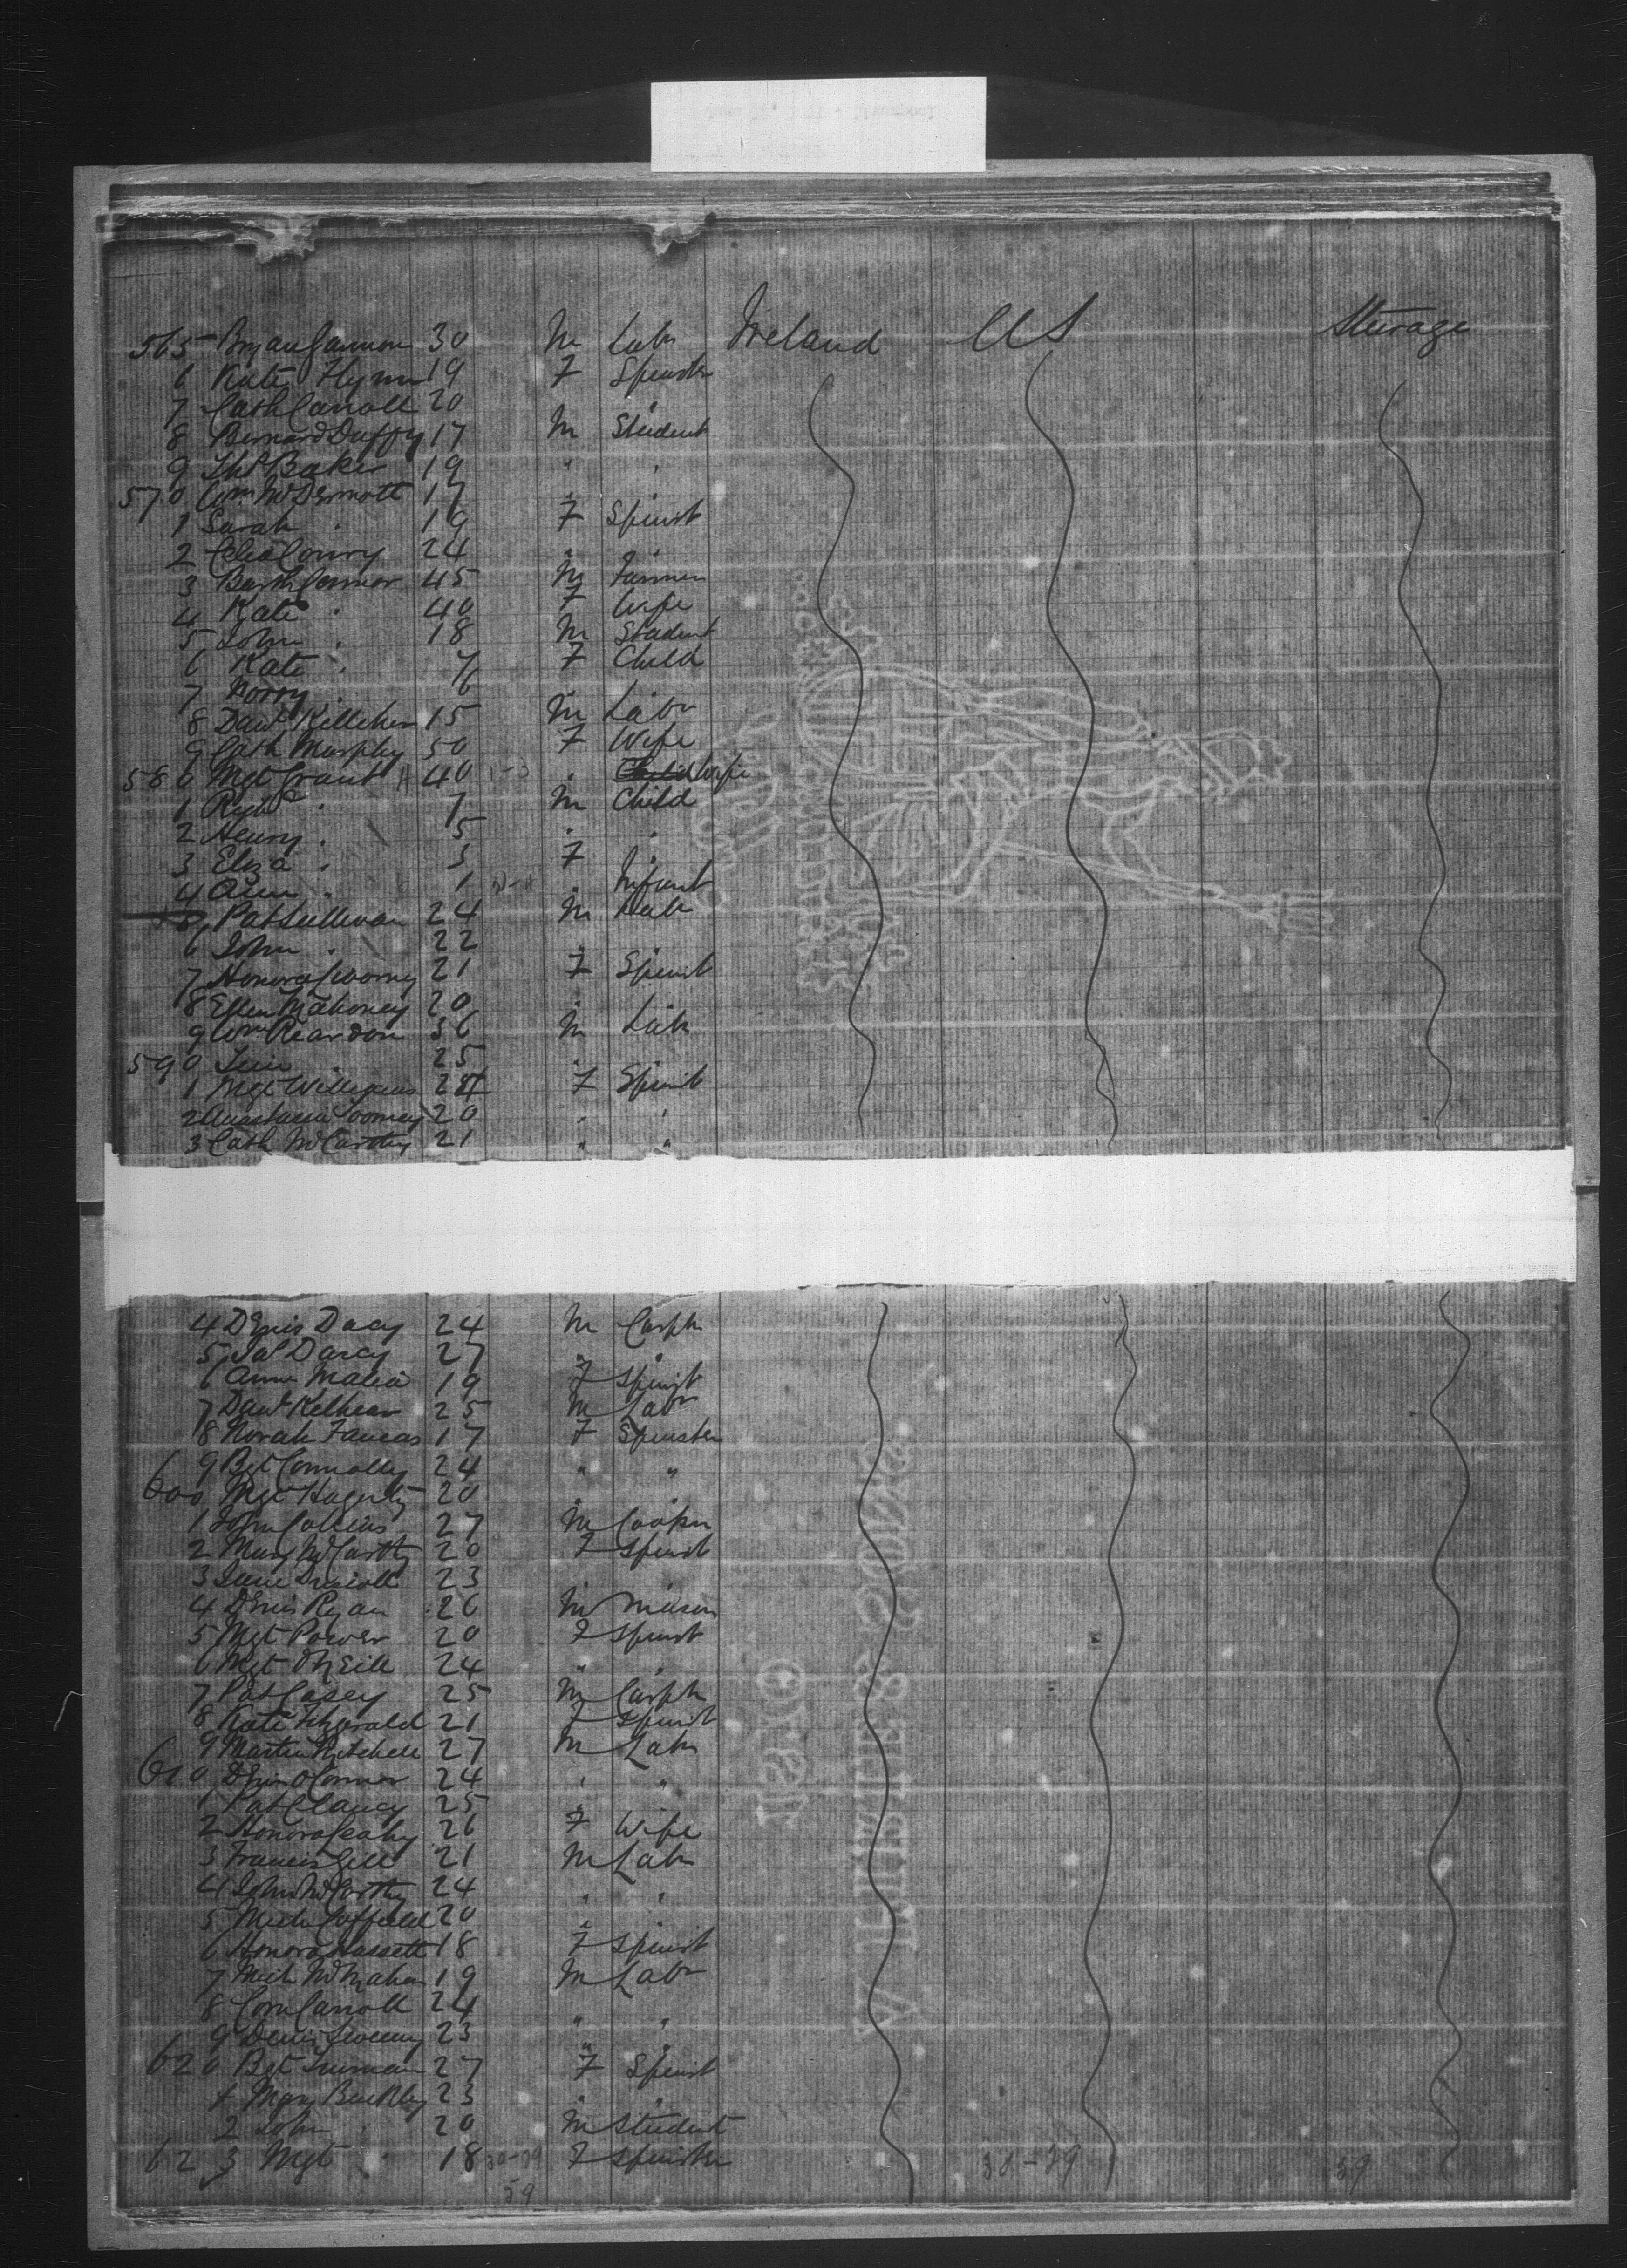 565 Bryan Gannon 30 M Labr Ireland US Steerage
6 Kate Flynn 19 F Spinster
7 Cath Carroll 20 "
8 Bernard Duffy 17 M Student
9 Thos Baker 19 " "
570 Wm McDermott 17 " "
1 Sarah " 19 F Spinst
2 Celia Conry 24 " "
3 Barth Connor 45 M Farmer
4 Kate " 40 F Wife
5 John " 18 M Student
6 Kate " 7 F Child
7 Norry " 6 " "
8 Danl Kelleher 15 M Labr
9 Cath Murphy 50 F Wife
580 Mgt Grant 40 " Wife
1 Richd " 7 M Child
2 Henry " 5 " "
3 Eliza " 3 F "
4 Ann " 1 " Infant
5 Pat Sullivan 24 M Labr
6 John " 22 "
7 Honora Twomey 21 F Spinst
8 Ellen Mahoney 20 "
9 Wm Reardon 36 M Labr
590 25 "
1 Mgt Williams F Spinst
2 Anastasia Toomey 20 " "
3 Cath McCarthy 21 " "
4 Denis Dacy 24 M Carptr
5 Jas Darcy 27 " "
6 Anne Malia 19 F Spinst
7 Danl 25 M Labr
8 Norah 17 F Spinster
9 Bgt Connolly 24 " "
600 Mgt Hagerty 20 " "
1 John Collins 27 M Cooper
2 Mary McCarthy 20 F Spinst
3 Driscoll 23
4 Denis Ryan 26 M Mason
5 Mgt Power 20 F Spinst
6 Mgt O'Neill 24 " "
7 Pat Casey 25 M Carptr
8 Kate Fitzgerald 21 F Spinst
9 Martin Mitchell 27 M Labr
610 Denis O'Connor 24 " "
1 Pat Clancy 25 "
2 Honora Leahy 26 F Wife
3 Francis Gill 21 M Labr
4 John McCarthy 24 " "
5 Mich 20 "
6 Honora Hassett 18 F Spinst
7 Mich McMahon 19 M Labr
8 Corn Carroll 24 " "
9 Denis Sweeny 23 " "
620 Bgt 27 F Spinst
1 Mary Buckley 23 " "
2 John " 20 M Student
623 Mgt " 18 F Spinster